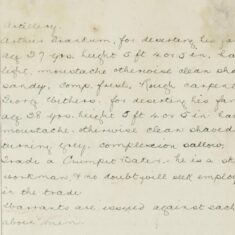 Artillery.
Arthur for deserting his fam
age 27 yrs. height 5 ft 4 or 5 in, ha
light, moustache otherwise clean sha
sandy, comp. fresh, Rough carpen
George Withers, for deserting his fam
age 28 yrs. height 5 ft 4 or 5 in hair
moustache, otherwise clean shaved
turning grey, complexion sallow,
Trade a Crumpet Baker, he is a
workman, & no doubt will seek employ
in the trade
Warrants are issued against each
above men.